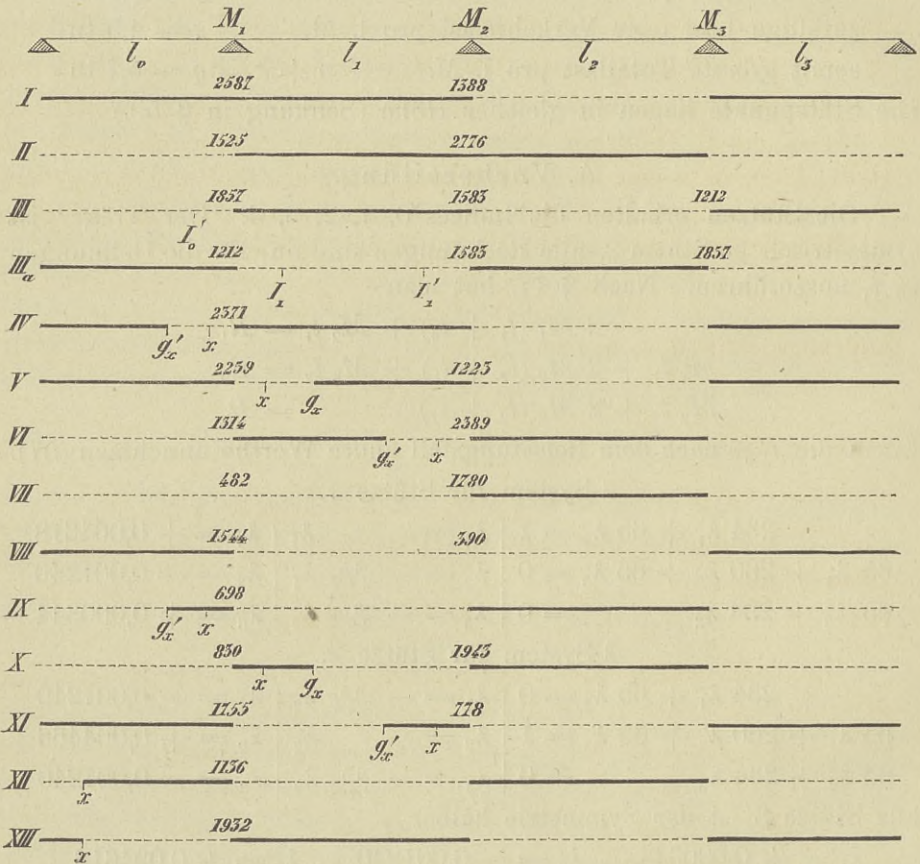 M₁ M₂ M₃
l₀ l₁ l₂ l₃
I 2587 1588
II 1525 2776
III 1857 1583 1212
I₀'
IIIₐ 1212 1583 1857
I₁ I₁'
IV 2371
gₓ' x
V 2259 1225
x gₓ
VI 1314 2389
gₓ' x
VII 482 1780
VIII 1544 390
IX 698
gₓ' x
X 830 1943
x gₓ
XI 1755 778
gₓ' x
XII 1136
x
XIII 1932
x